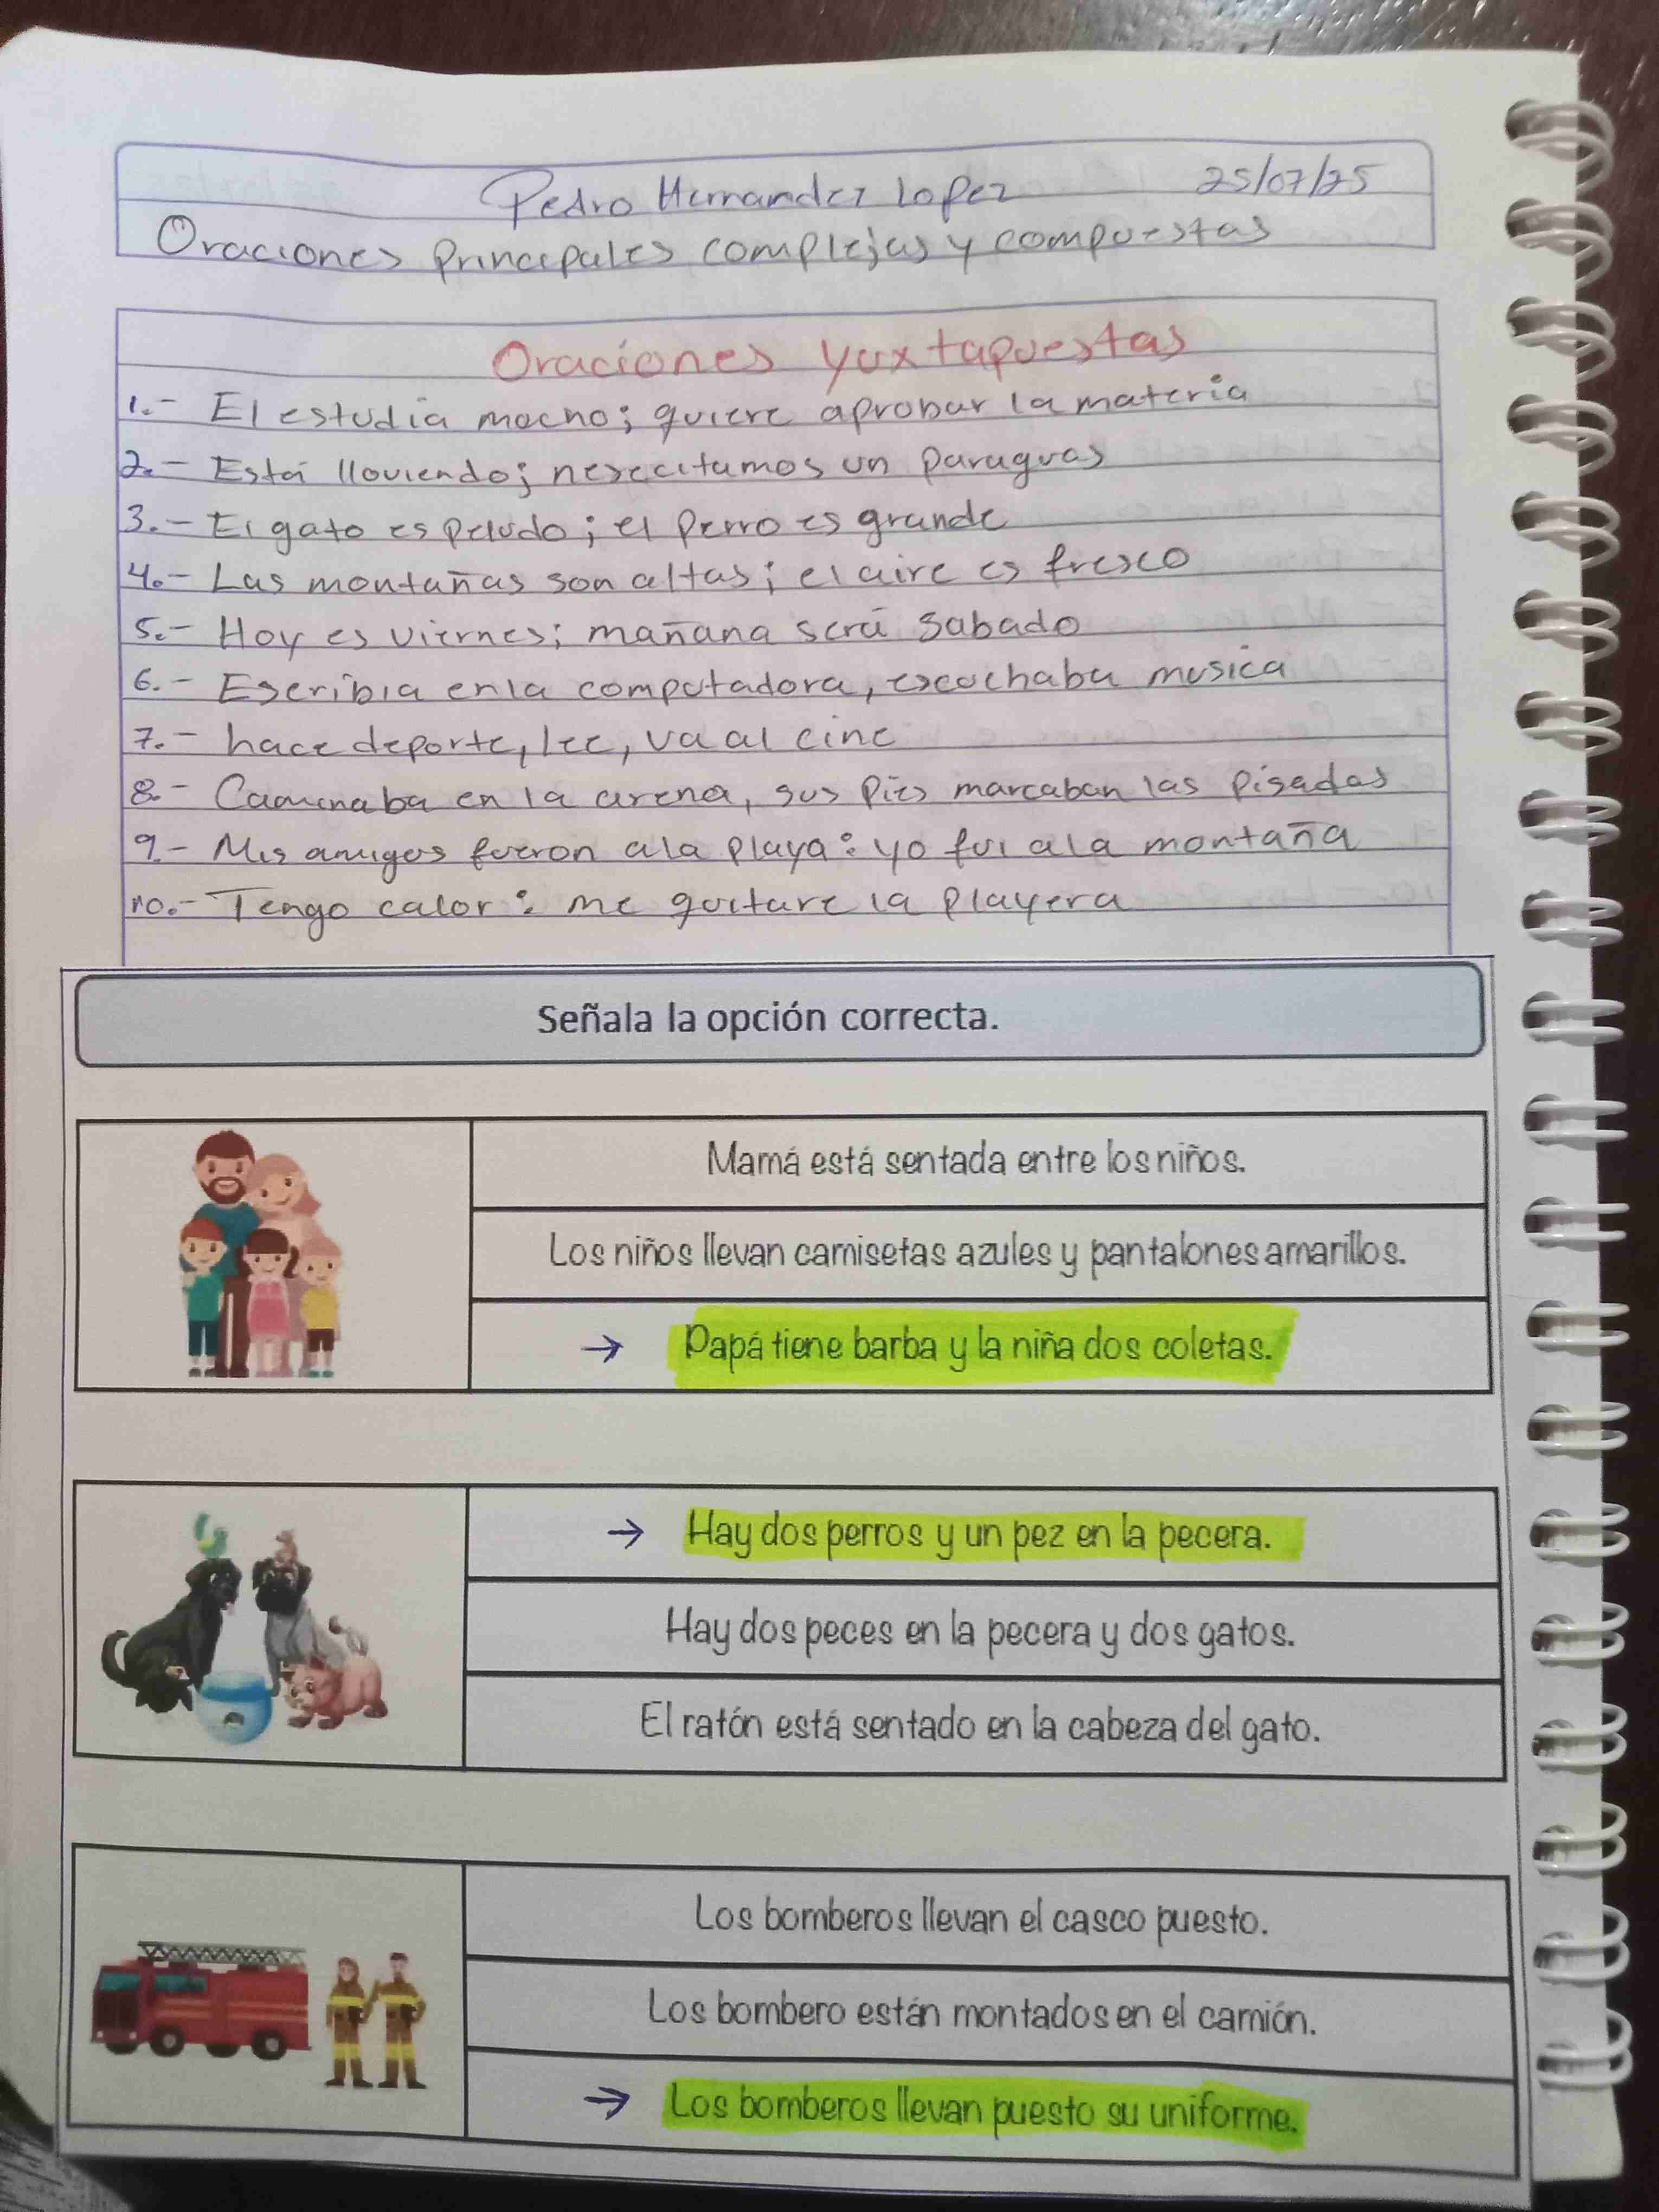 Pedro Hernandez Lopez 25/07/25
Oraciones Principales complejas y compuestas
Oraciones Yuxtapuestas
1.- El estudia mucho; quiere aprobar la materia
2.- Está lloviendo; nesecitamos un paraguas
3.- El gato es peludo; el perro es grande
4.- Las montañas son altas; el aire es fresco
5.- Hoy es viernes; mañana será sabado
6.- Escribia en la computadora, escuchaba musica
7.- hace deporte, lee, va al cine
8.- Caminaba en la arena, sus pies marcaban las pisadas
9.- Mis amigos fueron a la playa: yo fui a la montaña
10.- Tengo calor: me quitare la playera
Señala la opción correcta.
Mamá está sentada entre los niños.
Los niños llevan camisetas azules y pantalones amarillos.
→ Papá tiene barba y la niña dos coletas.
→ Hay dos perros y un pez en la pecera.
Hay dos peces en la pecera y dos gatos.
El ratón está sentado en la cabeza del gato.
Los bomberos llevan el casco puesto.
Los bombero están montados en el camión.
→ Los bomberos llevan puesto su uniforme.